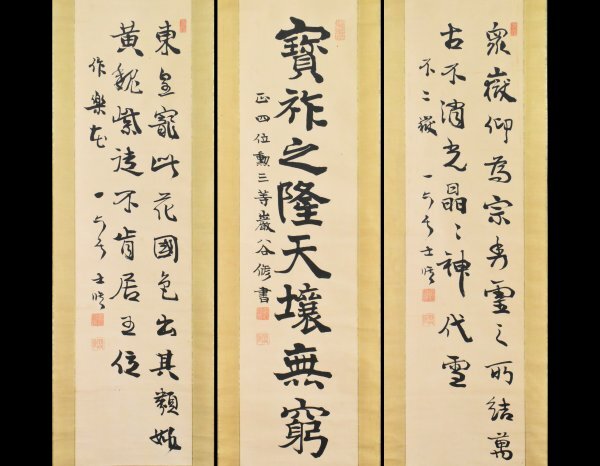 衆嶽仰為宗秀霊之所結萬
古不消光晶〻神代雪
不二嶽 一六居士脩
寳祚之隆天壌無窮
正四位勲三等巖谷脩書
東皇寵此花國色出其類姚
黄魏紫徒不肯居王位
作樂花 一六居士脩